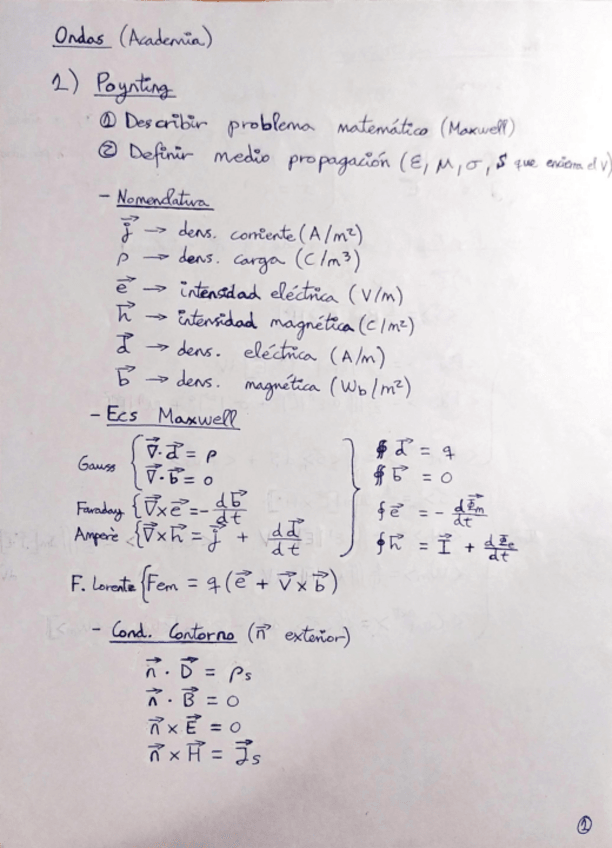 Ondas (Academia)
1) Poynting
① Describir problema matemático (Maxwell)
② Definir medio propagación (ε, μ, σ, S que encierra el V)
- Nomenclatura
j⃗ → dens. corriente (A/m²)
ρ → dens. carga (C/m³)
e⃗ → intensidad eléctrica (V/m)
h⃗ → intensidad magnética (C/m²)
d⃗ → dens. eléctrica (A/m)
b⃗ → dens. magnética (Wb/m²)
- Ecs Maxwell
Gauss { ∇⃗·d⃗ = ρ } ∯ d⃗ = q
∇⃗·b⃗ = 0 ∯ b⃗ = 0
Faraday { ∇⃗×e⃗ = - db⃗/dt ∮ e⃗ = - dΦ⃗m/dt
Amperè { ∇⃗×h⃗ = j⃗ + dd⃗/dt ∮ h⃗ = I⃗ + dΦe/dt
F. Lorente { Fem = q (e⃗ + v⃗ × b⃗)
- Cond. Contorno (n⃗ exterior)
n⃗ · D⃗ = ρs
n⃗ · B⃗ = 0
n⃗ × E⃗ = 0
n⃗ × H⃗ = J⃗s
①